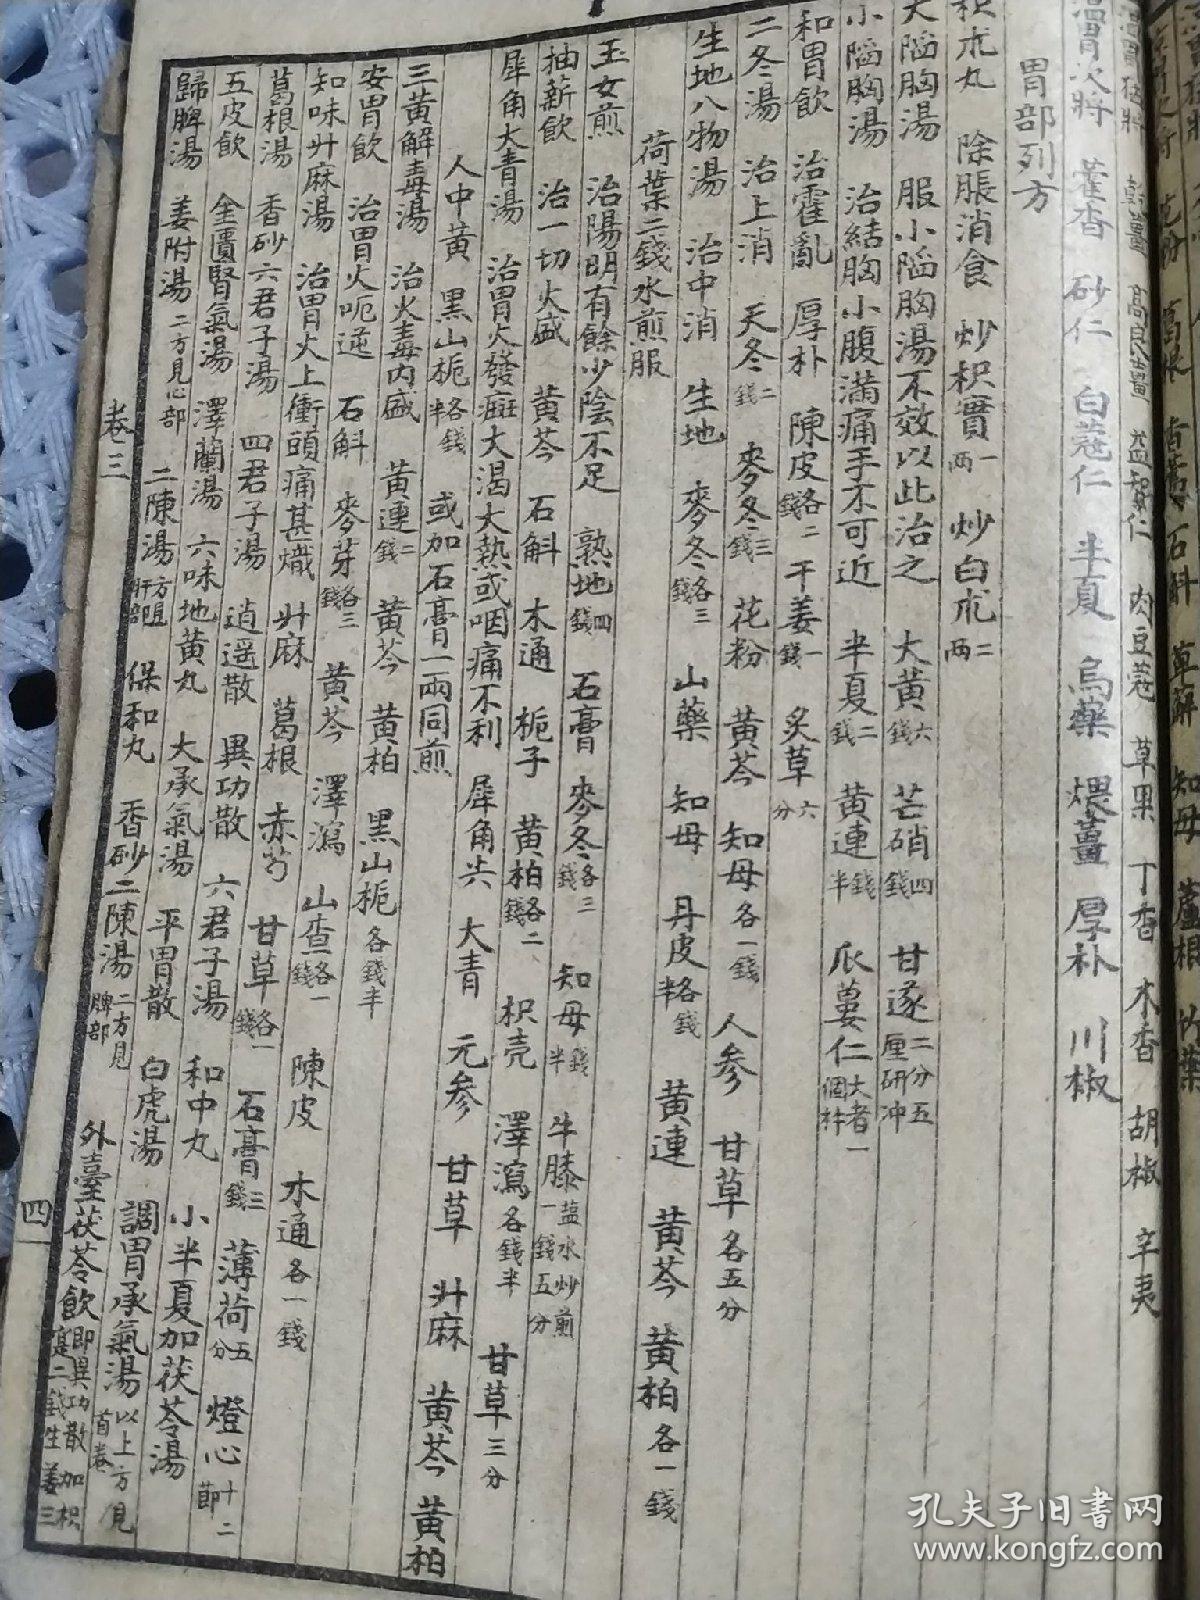 溫胃次將 藿香 砂仁 白蔻仁 半夏 烏藥 煨薑 厚朴 川椒
胃部列方
枳朮丸 除脹消食 炒枳實一兩 炒白朮二兩
大陷胸湯 服小陷胸湯不效以此治之 大黃六錢 芒硝四錢 甘遂二分五厘研冲
小陷胸湯 治結胸小腹滿痛手不可近 半夏二錢 黃連錢半 瓜蔞仁大者一個杵
和胃飲 治霍亂 厚朴 陳皮各二錢 干姜一錢 炙草六分
二冬湯 治上消 天冬二錢 麥冬三錢 花粉 黃芩 知母各一錢 人參 甘草各五分
生地八物湯 治中消 生地 麥冬各三錢 山藥 知母 丹皮各錢半 黃連 黃芩 黃柏各一錢
荷葉二錢水煎服
玉女煎 治陽明有餘少陰不足 熟地四錢 石膏 麥冬各三錢 知母錢半 牛膝盐水炒煎一錢五分
抽薪飲 治一切火盛 黃芩 石斛 木通 梔子 黃柏各二錢 枳壳 澤瀉各錢半 甘草三分
犀角大青湯 治胃火發斑大渴大熱或咽痛不利 犀角尖 大青 元參 甘草 升麻 黃芩 黃柏
人中黃 黑山梔各錢半 或加石膏一兩同煎
三黃解毒湯 治火毒內盛 黃連二錢 黃芩 黃柏 黑山梔各錢半
安胃飲 治胃火呃逆 石斛 麥芽各三錢 黃芩 澤瀉 山查各一錢 陳皮 木通各一錢
知味升麻湯 治胃火上衝頭痛甚熾 升麻 葛根 赤芍 甘草各一錢 石膏三錢 薄荷五分 燈心十二節
葛根湯 香砂六君子湯 四君子湯 逍遥散 異功散 六君子湯 和中丸 小半夏加茯苓湯
五皮飲 金匱腎氣湯 澤蘭湯 六味地黃丸 大承氣湯 平胃散 白虎湯 調胃承氣湯以上方見首卷
歸脾湯 姜附湯二方見心部 二陳湯方見肝部 保和丸 香砂二陳湯二方見脾部 外臺茯苓飲即異功散加枳寔二錢生姜三
卷三
四
孔夫子旧书网
www.kongfz.com